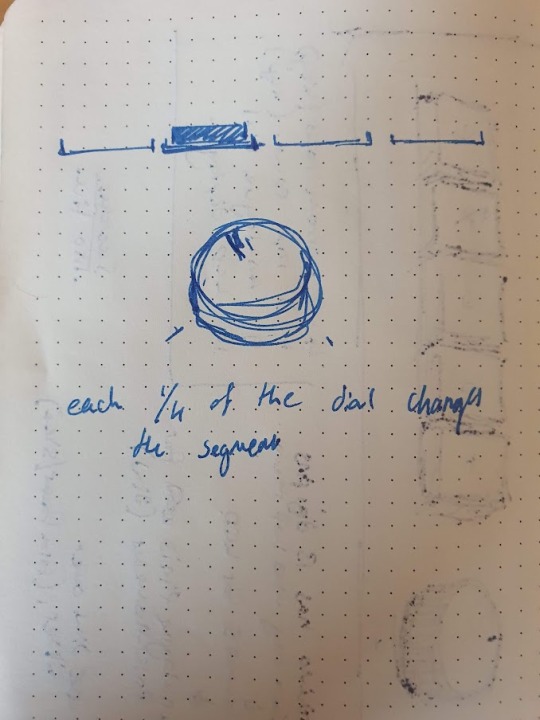 each 1/4 of the dial changes
the segment